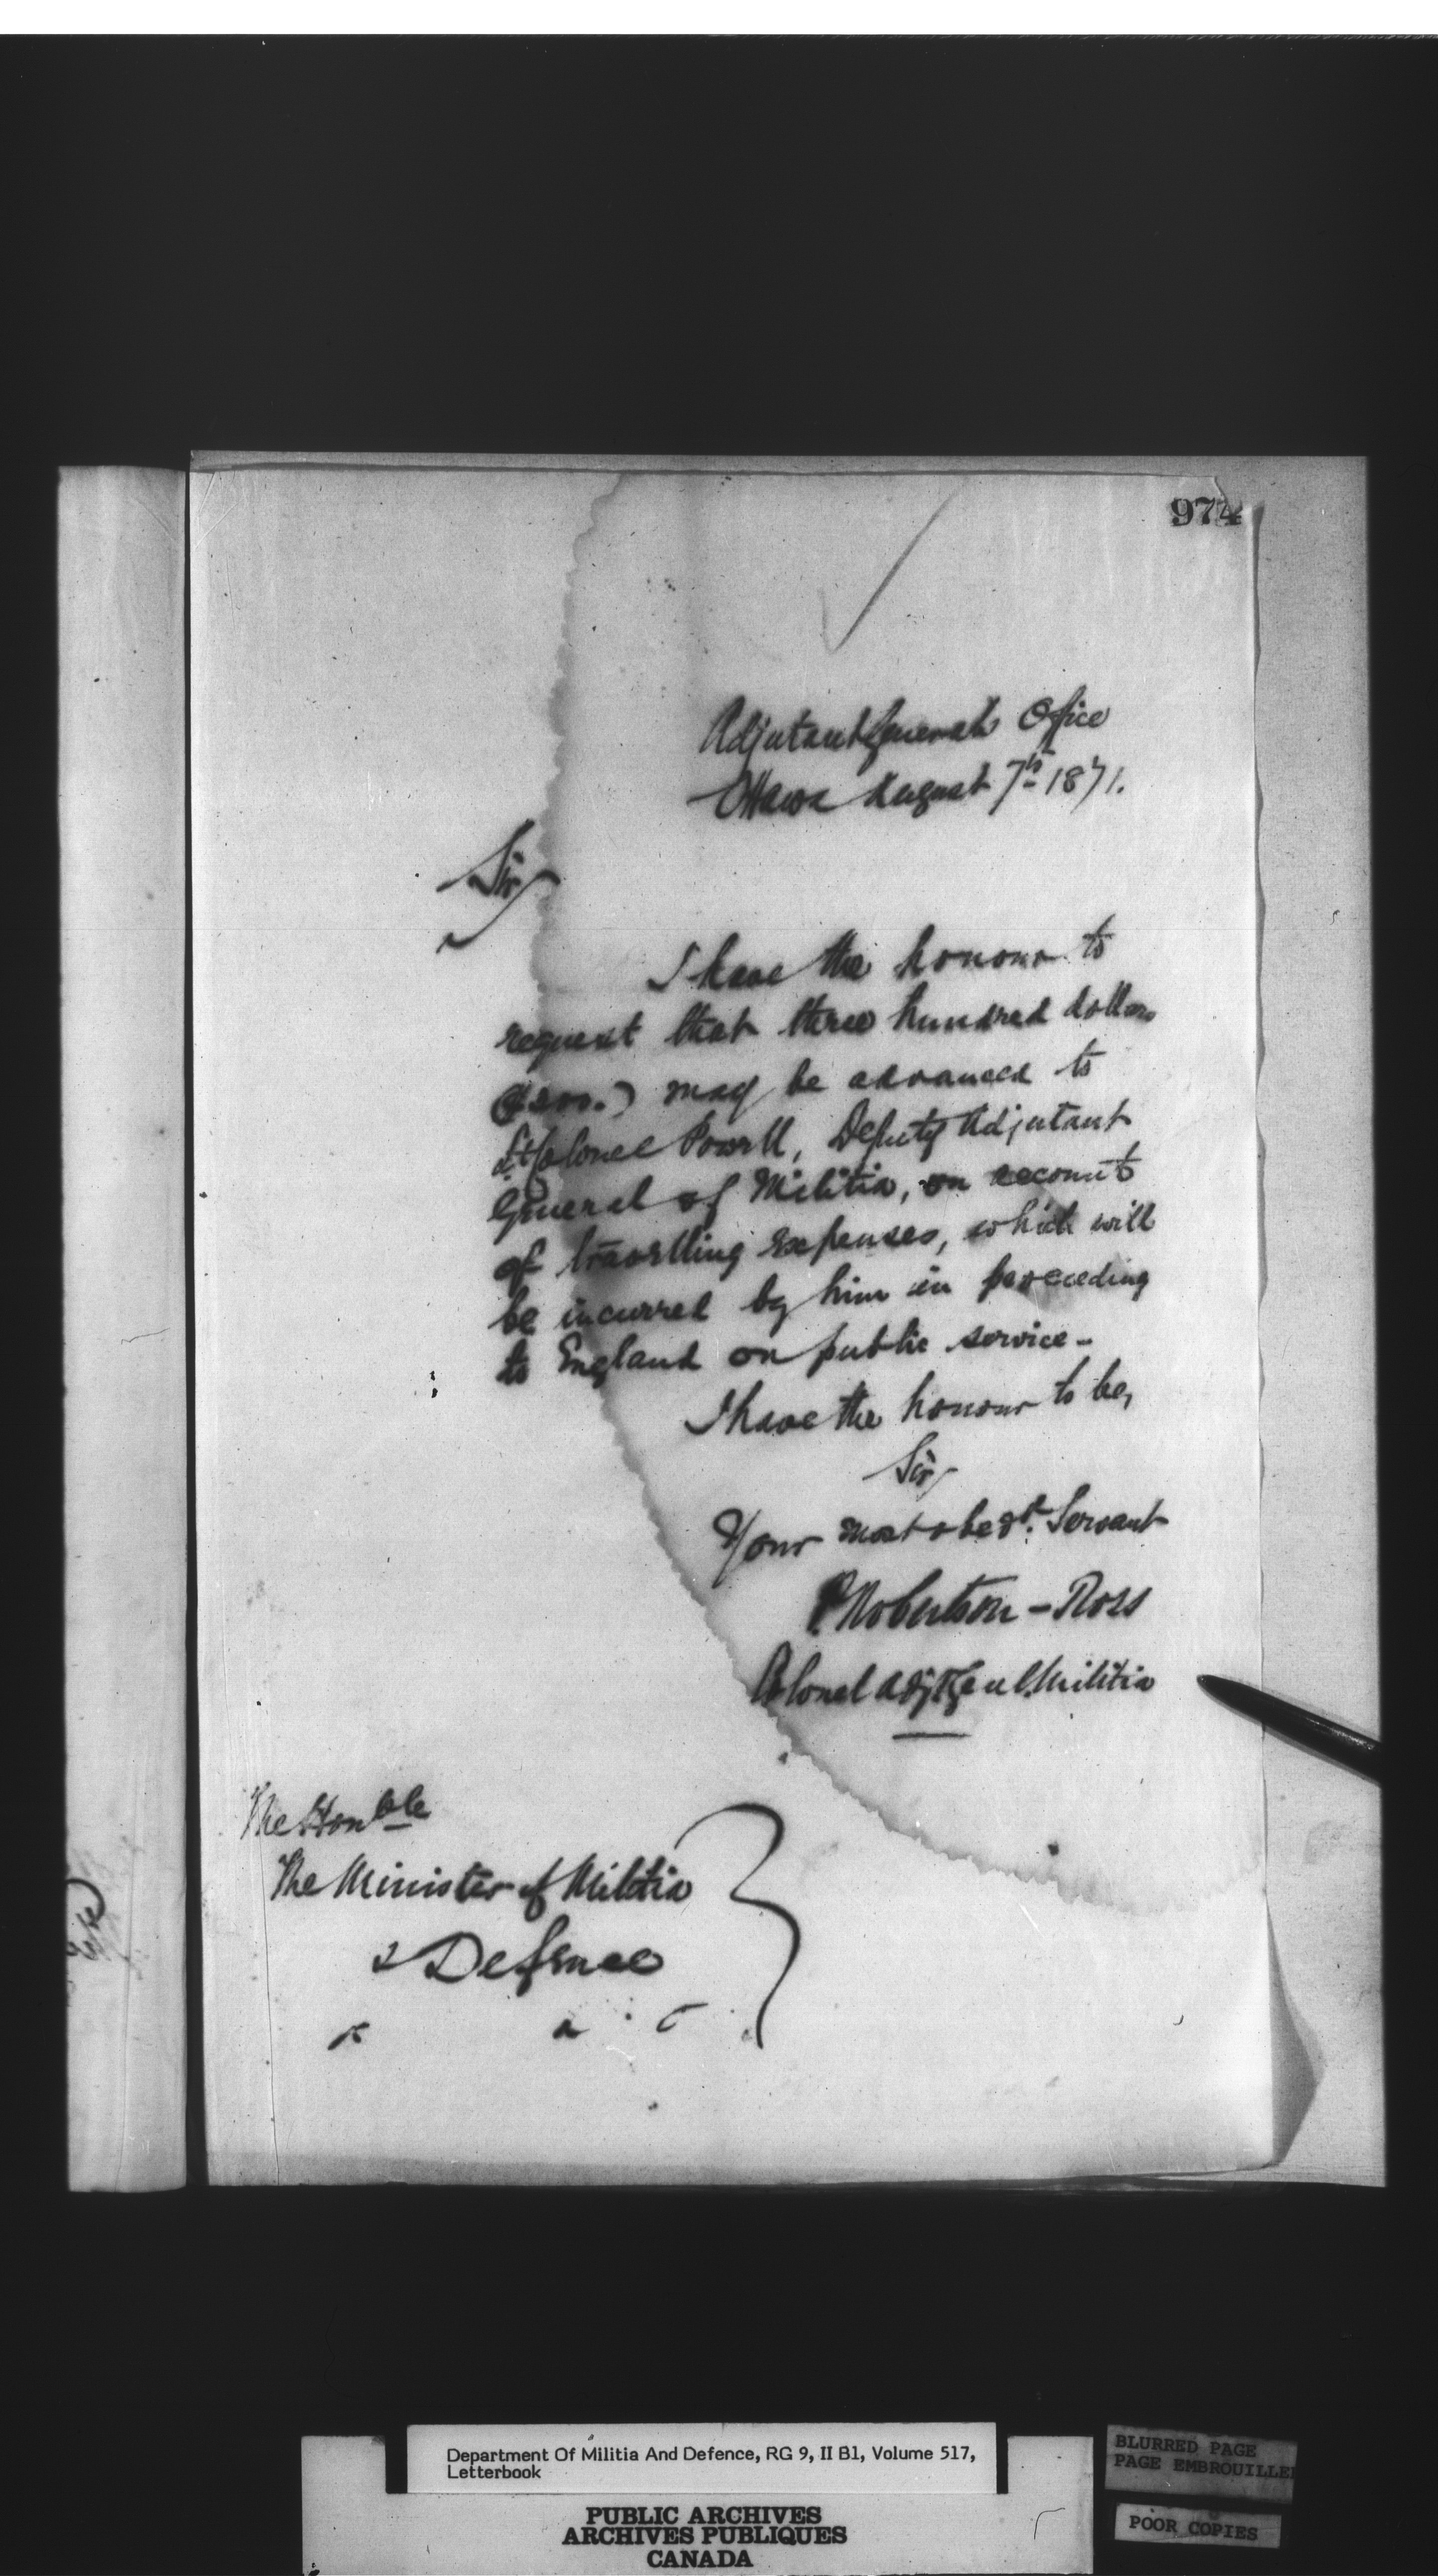 974
Adjutant Generals Office
Ottawa August 7th 1871.
Sir
I have the honour to
request that three hundred dollars
($300.) may be advanced to
Lt Colonel Powell, Deputy Adjutant
General of Militia, on account
of travelling expenses, which will
be incurred by him in proceeding
to England on public service -
I have the honour to be,
Sir
Your most obedt. Servant
P. Robertson - Ross
Colonel Adjt Genl. Militia
The Honble
The Minister of Militia
& Defence
Department Of Militia And Defence, RG 9, II B1, Volume 517,
Letterbook
PUBLIC ARCHIVES
ARCHIVES PUBLIQUES
CANADA
BLURRED PAGE
PAGE EMBROUILLEE
POOR COPIES